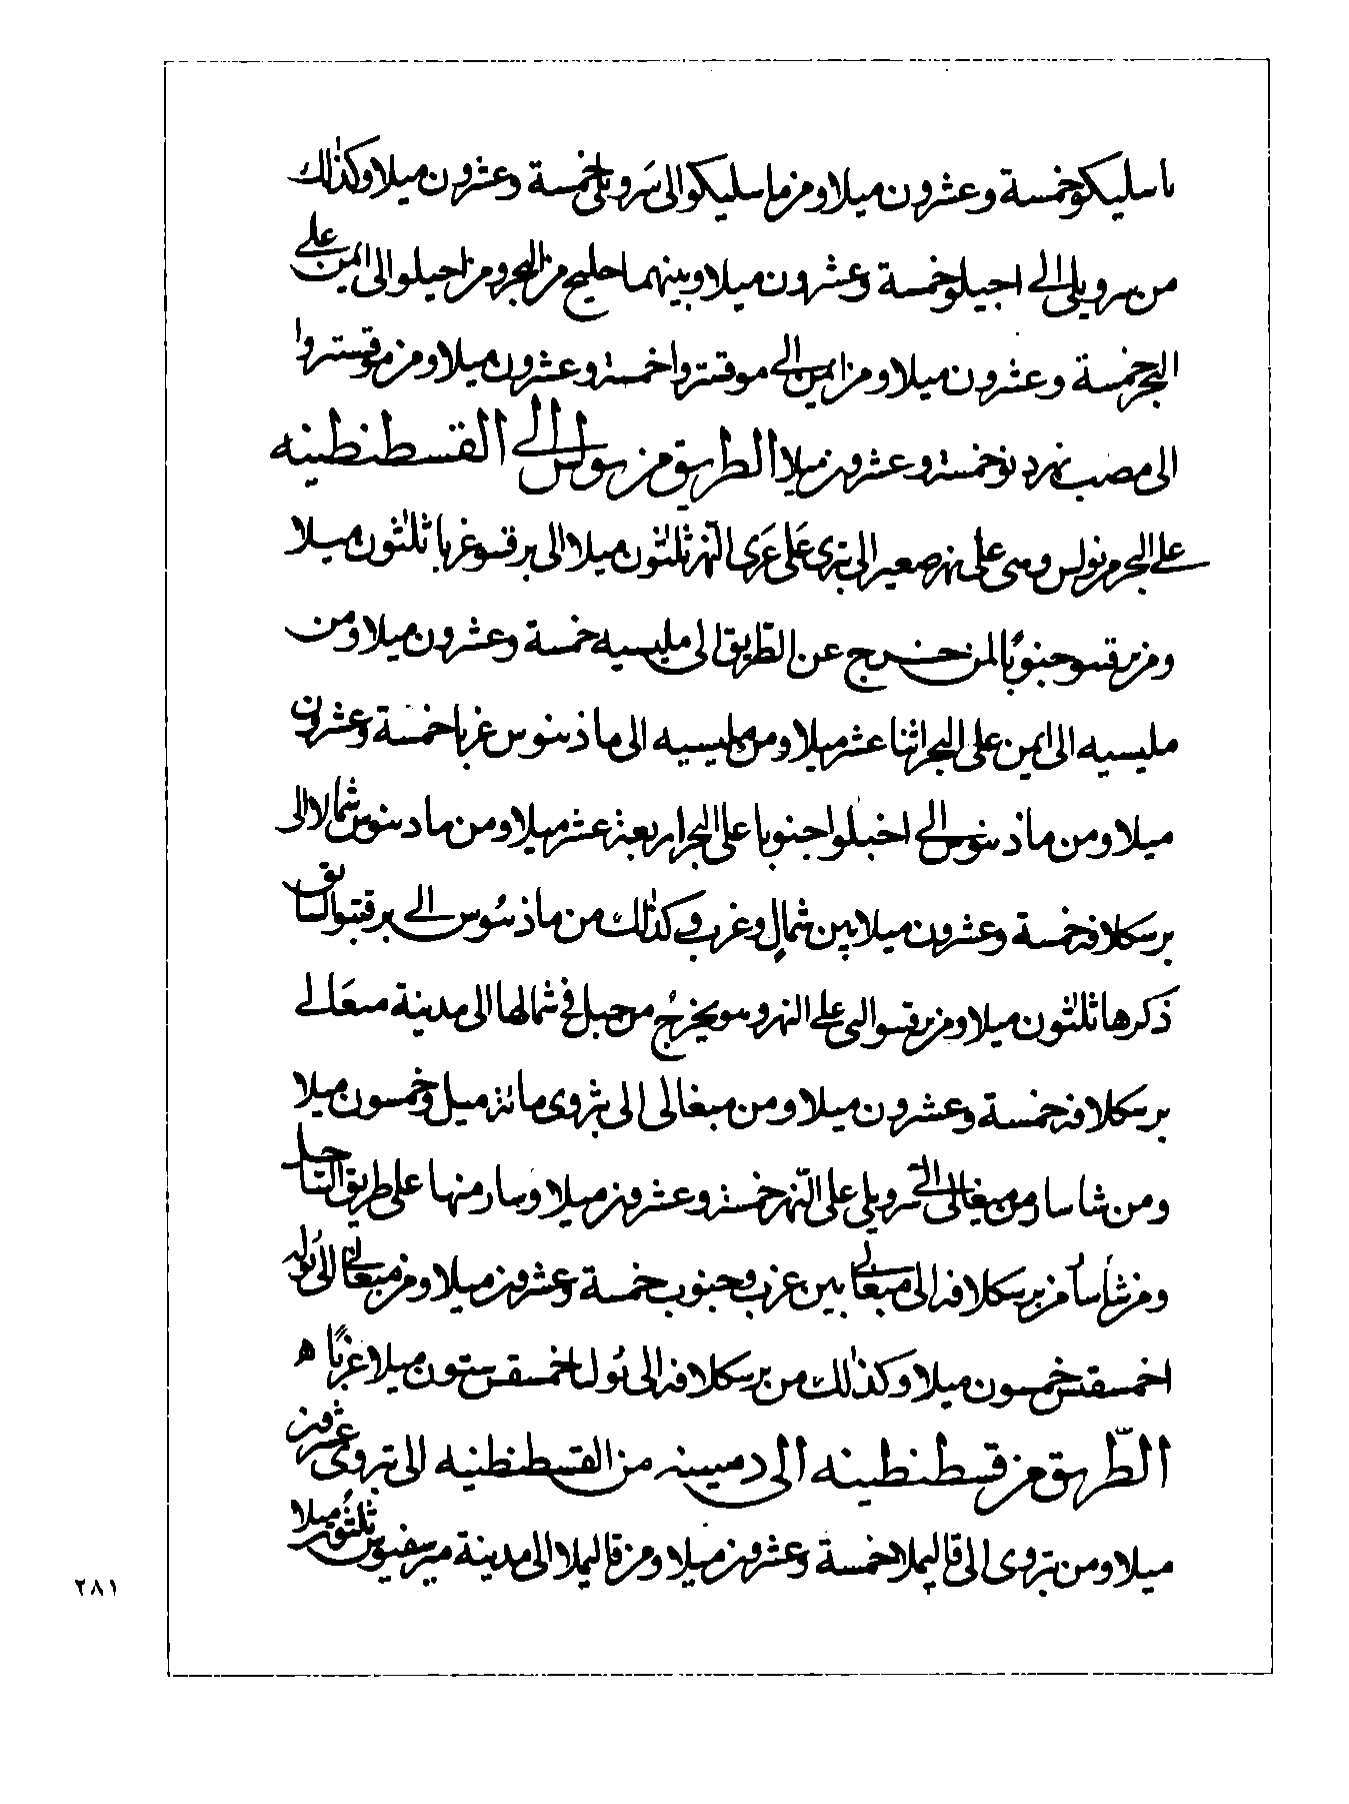 باسليكو خمسة وعشرون ميلا ومن ماسليكو الى سرويلى خمسة وعشرون ميلا وكذلك
من سرويلى الى اجيلو خمسة وعشرون ميلا وبينهما خليج من البحر ومن اجيلو الى ايمن على
البحر خمسة وعشرون ميلا ومن ايمن الى موقسترو اخمسة وعشرون ميلا ومن موقستروا
الى مصب نهر دنو خمسة وعشرون ميلا الطريق من بولس الى القسطنطينه
على البحر من نولس وهى على نهر صغير الى بترى على غربى النهر ثلثون ميلا الى برقسو غربا ثلثون ميلا
ومن برقسو جنوبا لمن خرج عن الطريق الى مليسيه خمسة وعشرون ميلا ومن
مليسيه الى ايمن على البحر اثنا عشر ميلا ومن مليسيه الى ماذنوس غربا خمسة وعشرون
ميلا ومن ماذنوس الى اخيلوا جنوبا على البحر اربعة عشر ميلا ومن مادنوس شمالا الى
برسكلافه خمسة وعشرون ميلا بين شمال وغرب وكذلك من ماذنوس الى برقنتوا السابق
ذكرها ثلثون ميلا ومن برقسو التى على النهر وهو يخرج من جبل فى شمالها الى مدينة مىىعالى
برسكلافه خمسة وعشرون ميلا ومن مىىغالى الى بثروى مائة ميل وخمسون ميلا
ومن شاسا ومن مىىغالى الى سرويلى على النهر خمسة وعشرون ميلا وسار منها على طريق الساحل
ومن شاسا من برسكلافه الى مىىعالى بين غرب وجنوب خمسة وعشرون ميلا ومن مىىعالى الى لوله
اخمسقس خمسون ميلا وكذلك من برسكلافه الى لولا خمسقس ستون ميلا غربا ه
الطريق من قسطنطينه الى دمسينه من القسطنطنيه الى بتروى عشرون
ميلا ومن بتروى الى قاليملا خمسة وعشرون ميلا ومن قاليملا الى مدينة ميرسفنيوس ثلثون ميلا
٢٨١